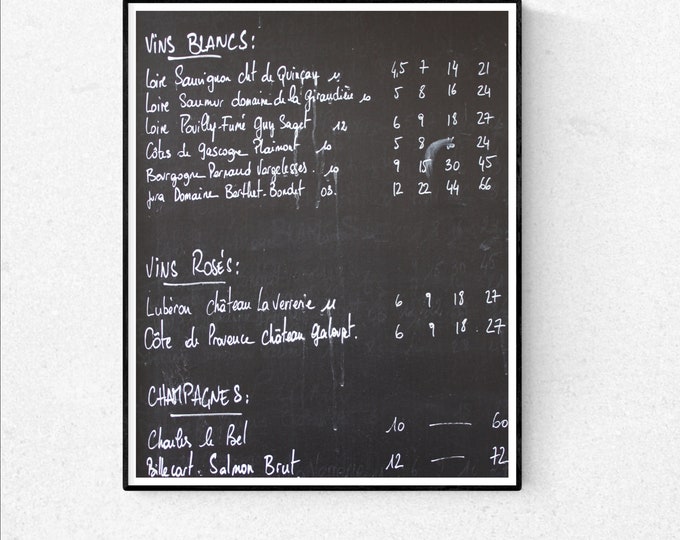 VINS BLANCS:
Loire Sauvignon cht de Quinçay 11 4,5 7 14 21
Loire Saumur domaine de la Giraudière 10 5 8 16 24
Loire Pouilly-Fumé Guy Saget 12 6 9 18 27
Côtes de Gascogne Plaimont 10 5 8 16 24
Bourgogne Pernand Vergelesses. 10 9 15 30 45
Jura Domaine Berthet-Bondet 03 12 22 44 66
VINS ROSÉS:
Lubéron château La Verrerie 11 6 9 18 27
Côte de Provence château Galoupet. 6 9 18 27
CHAMPAGNES:
Charles le Bel 10 — 60
Billecart. Salmon Brut 12 — 72